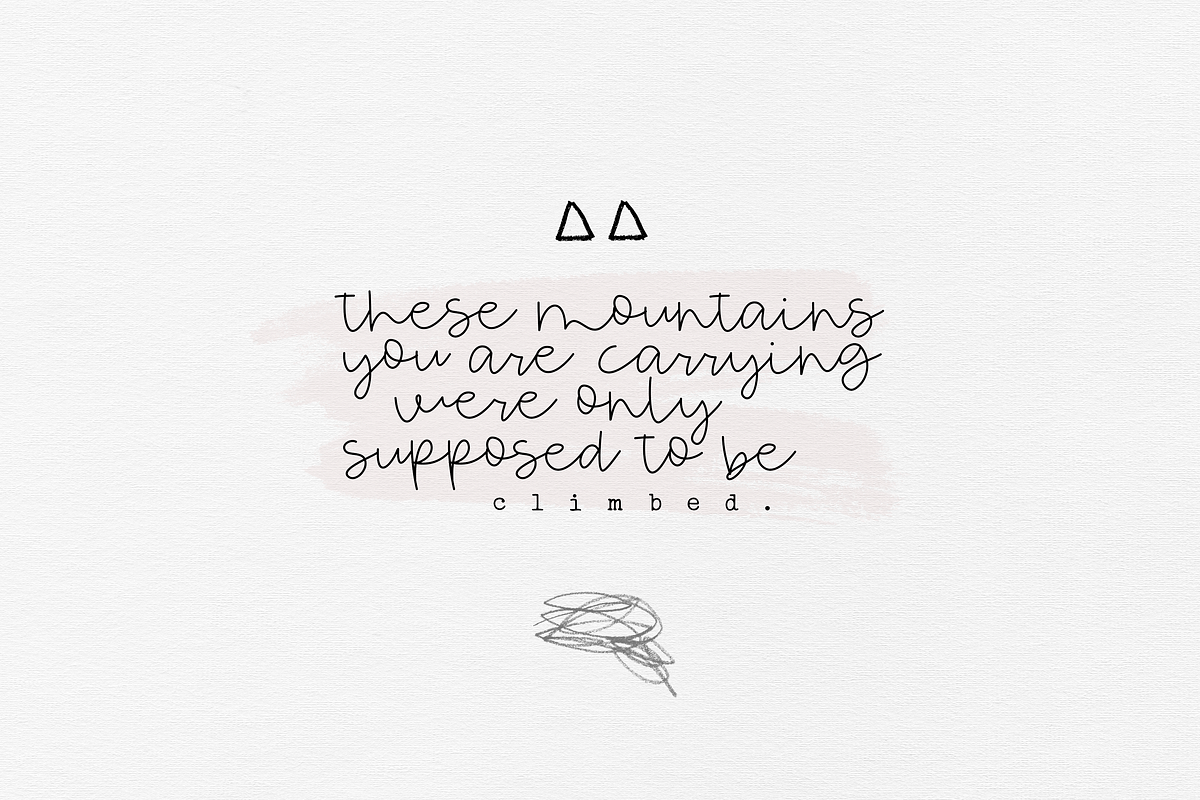 these mountains
you are carrying
were only
supposed to be
climbed.